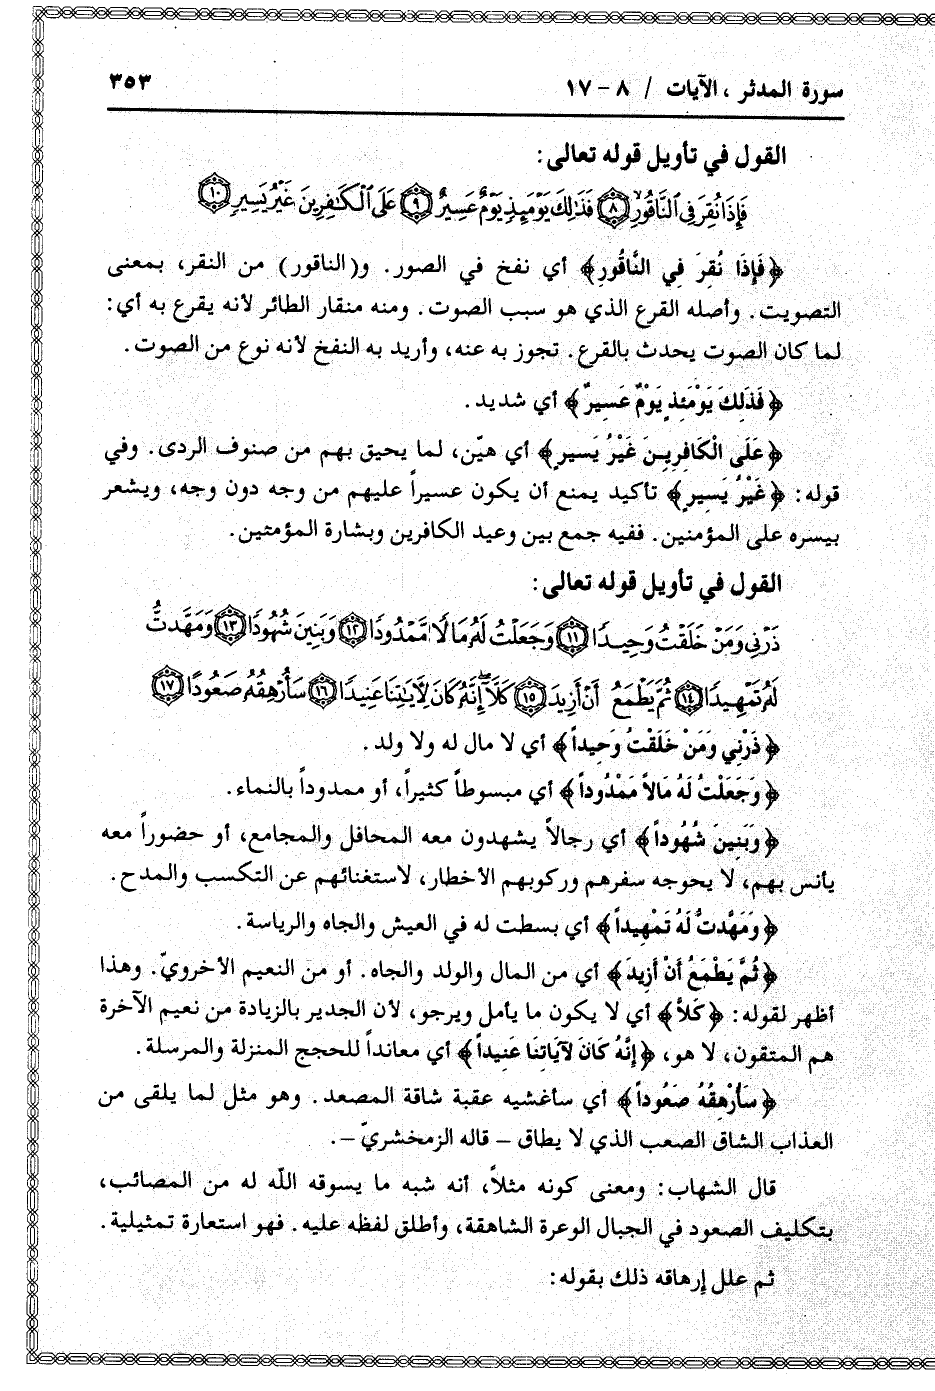 سورة المدثر ، الآيات / ٨ – ١٧
٣٥٣
القول في تأويل قوله تعالى:
فَإِذَا نُقِرَ فِي ٱلنَّاقُورِ ٨ فَذَٰلِكَ يَوْمَئِذٍ يَوْمٌ عَسِيرٌ ٩ عَلَى ٱلْكَٰفِرِينَ غَيْرُ يَسِيرٍ ١٠
﴿فَإِذَا نُقِرَ فِي النَّاقُورِ﴾ أي نفخ في الصور. و(الناقور) من النقر، بمعنى
التصويت. وأصله القرع الذي هو سبب الصوت. ومنه منقار الطائر لأنه يقرع به أي:
لما كان الصوت يحدث بالقرع. تجوز به عنه، وأريد به النفخ لأنه نوع من الصوت.
﴿فَذَلِكَ يَوْمَئِذٍ يَوْمٌ عَسِيرٌ﴾ أي شديد.
﴿عَلَى الْكَافِرِينَ غَيْرُ يَسيرٍ﴾ أي هيّن، لما يحيق بهم من صنوف الردى. وفي
قوله: ﴿غَيْرُ يَسِيرٍ﴾ تأكيد يمنع أن يكون عسيراً عليهم من وجه دون وجه، ويشعر
بيسره على المؤمنين. ففيه جمع بين وعيد الكافرين وبشارة المؤمتين.
القول في تأويل قوله تعالى:
ذَرْنِي وَمَنْ خَلَقْتُ وَحِيدًا ١١ وَجَعَلْتُ لَهُۥ مَالًا مَّمْدُودًا ١٢ وَبَنِينَ شُهُودًا ١٣ وَمَهَّدتُّ
لَهُۥ تَمْهِيدًا ١٤ ثُمَّ يَطْمَعُ أَنْ أَزِيدَ ١٥ كَلَّآ إِنَّهُۥ كَانَ لِأَيَٰتِنَا عَنِيدًا ١٦ سَأُرْهِقُهُۥ صَعُودًا ١٧
﴿ذَرْنِي وَمَنْ خَلَقْتُ وَحِيداً﴾ أي لا مال له ولا ولد.
﴿وَجَعَلْتُ لَهُ مَالاً مَمْدُوداً﴾ أي مبسوطاً كثيراً، أو ممدوداً بالنماء.
﴿وَبَنِينَ شُهُوداً﴾ أي رجالاً يشهدون معه المحافل والمجامع، أو حضوراً معه
يأنس بهم، لا يحوجه سفرهم وركوبهم الأخطار، لاستغنائهم عن التكسب والمدح.
﴿وَمَهَّدتُّ لَهُ تَمْهِيداً﴾ أي بسطت له في العيش والجاه والرياسة.
﴿ثُمَّ يَطْمَعُ أَنْ أَزِيدَ﴾ أي من المال والولد والجاه. أو من النعيم الأخرويّ. وهذا
أظهر لقوله: ﴿كَلاَّ﴾ أي لا يكون ما يأمل ويرجو، لأن الجدير بالزيادة من نعيم الآخرة
هم المتقون، لا هو، ﴿إِنَّهُ كَانَ لآيَاتِنَا عَنِيداً﴾ أي معانداً للحجج المنزلة والمرسلة.
﴿سَأُرْهِقُهُ صَعُوداً﴾ أي سأغشيه عقبة شاقة المصعد. وهو مثل لما يلقى من
العذاب الشاق الصعب الذي لا يطاق – قاله الزمخشريّ –.
قال الشهاب: ومعنى كونه مثلاً، أنه شبه ما يسوقه اللّه له من المصائب،
بتكليف الصعود في الجبال الوعرة الشاهقة، وأطلق لفظه عليه. فهو استعارة تمثيلية.
ثم علل إرهاقه ذلك بقوله: